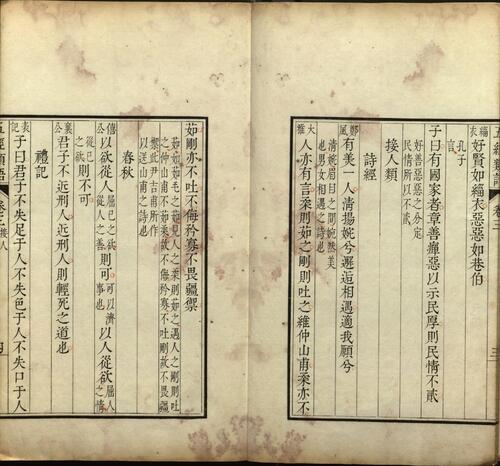 緇衣好賢如緇衣惡惡如巷伯
孔子言
子曰有國家者章善癉惡以示民厚則民情不貳
好善惡惡之分定
民情所以不貳
接人類
詩經
鄭風有美一人清揚婉兮邂逅相遇適我願兮
清婉眉目之間婉然美
也男女相遇之詩也
大雅人亦有言柔則茹之剛則吐之維仲山甫柔亦不
茹剛亦不吐不侮矜寡不畏彊禦
茹如茹毛之茹見人之柔則茹之遇人之剛則吐
之仲山甫不茹柔故不侮矜寡不吐剛故不畏彊
禦此尹吉甫所作
以送山甫之詩也
春秋
僖公以欲從人屈已之欲從人之善則可可以濟事也以人從欲屈人之情
從已之欲則不可
襄公君子不近刑人近刑人則輕死之道也
禮記
表記子曰君子不失足于人不失色于人不失口于人
五經類語 接人 四